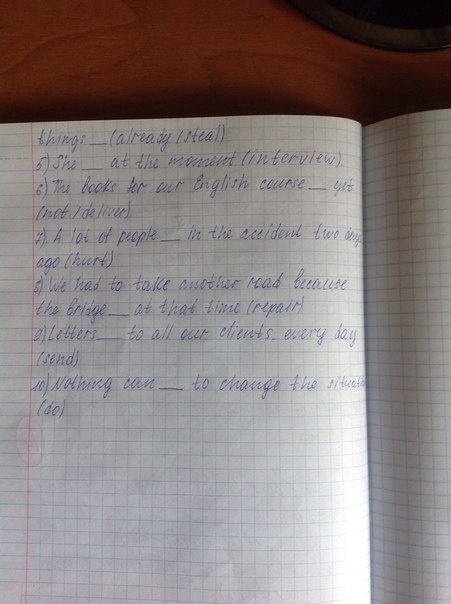 things __ (already / steal)
5) She __ at the moment (interview).
6) The books for our English course __ yet
(not / deliver)
7) A lot of people __ in the accident two days
ago (hurt)
8) We had to take another road because
the bridge __ at that time (repair)
9) Letters __ to all our clients every day
(send)
10) Nothing can __ to change the situat
(do)